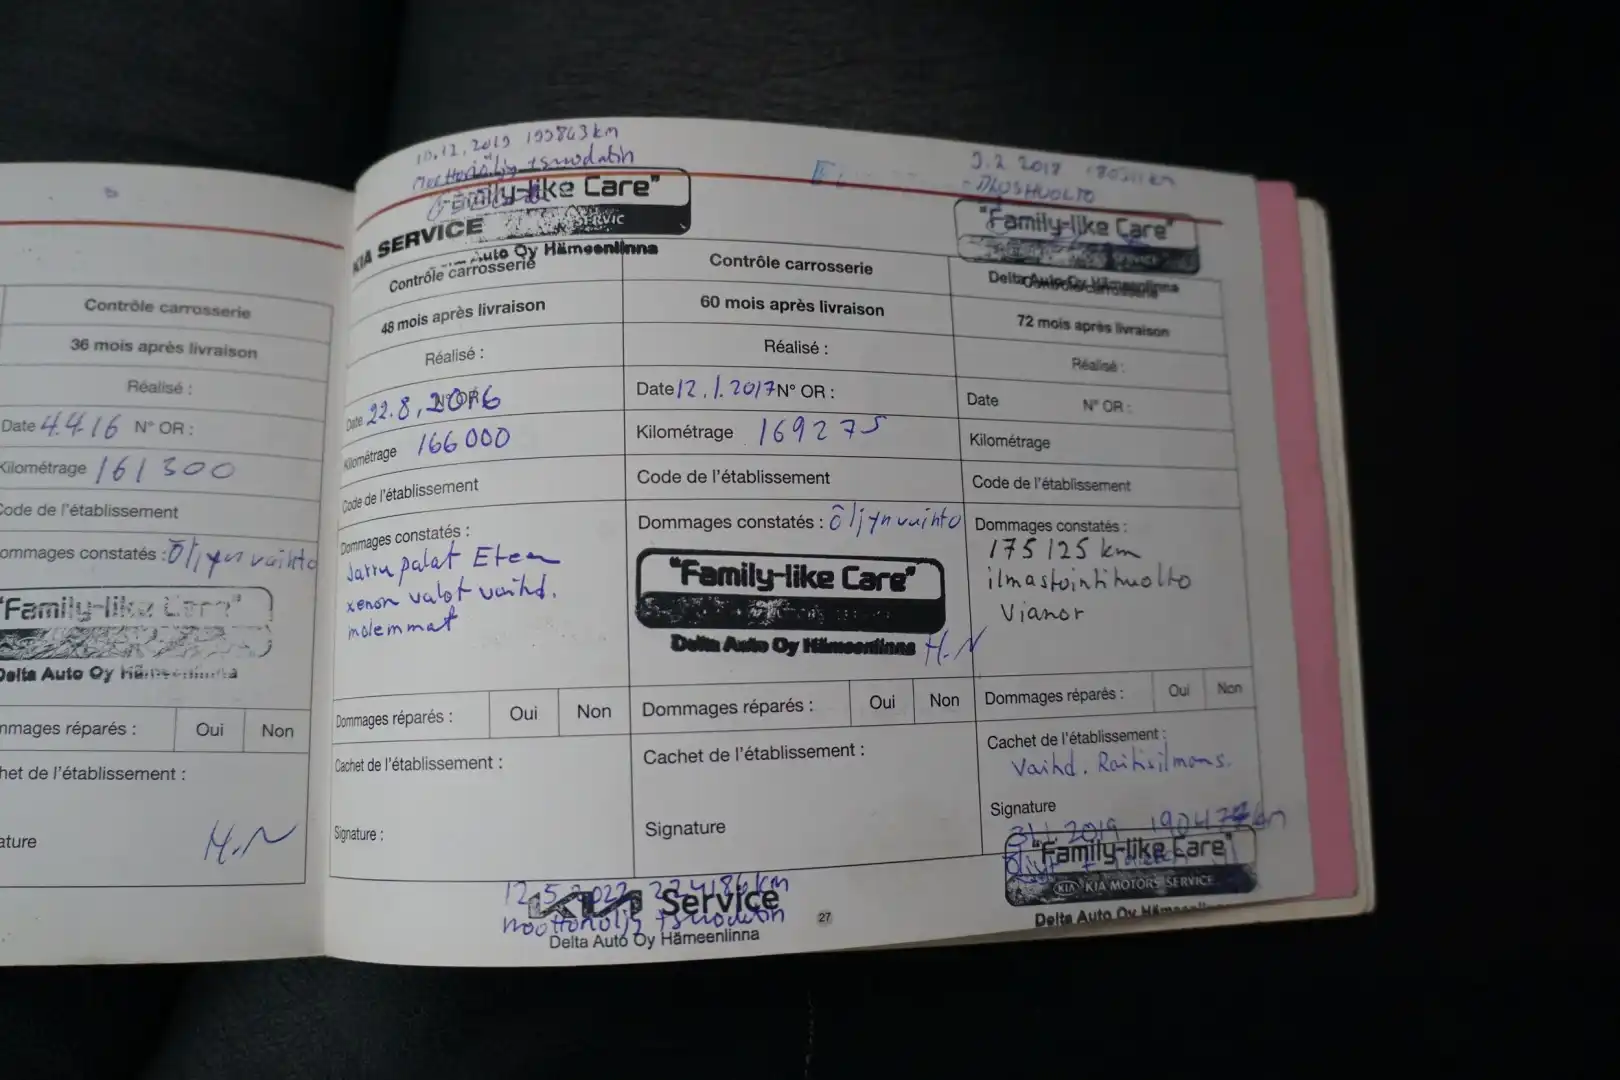 Contrôle carrosserie
36 mois après livraison
Réalisé :
Date 4.4.16 N° OR :
Kilométrage 161300
Code de l'établissement
ommages constatés : Öljyn vaihto
"Family-like Care"
Delta Auto Oy Hämeenlinna
mmages réparés : Oui Non
het de l'établissement :
ature H.N
10.12.2019
Moottoriöljy + suodatin
"Family-like Care"
KIA SERVICE
Auto Oy Hämeenlinna
Contrôle carrosserie
48 mois après livraison
Réalisé :
Date 22.8.2016 N° OR
Kilométrage 166000
Code de l'établissement
Dommages constatés :
Jarru palat Eteen
xenon valot vaihd.
molemmat
Dommages réparés : Oui Non
Cachet de l'établissement :
Signature :
Contrôle carrosserie
60 mois après livraison
Réalisé :
Date 12.1.2017 N° OR :
Kilométrage 169275
Code de l'établissement
Dommages constatés : öljyn vaihto
"Family-like Care"
Delta Auto Oy Hämeenlinna H.N
Dommages réparés : Oui Non
Cachet de l'établissement :
Signature
2018
"Family-like Care"
Delta Auto Oy Hämeenlinna
Contrôle carrosserie
72 mois après livraison
Réalisé :
Date N° OR :
Kilométrage
Code de l'établissement
Dommages constatés :
175125 km
ilmastointihuolto
Vianor
Dommages réparés : Oui Non
Cachet de l'établissement :
Vaihd. Raitisilmans.
Signature
2019
"Family-like Care"
KIA KIA MOTORS SERVICE
Delta Auto Oy Hämeenlinna
12.5.2022 224186 km
KIA Service
moottoriöljy + suodatin
Delta Auto Oy Hämeenlinna
27